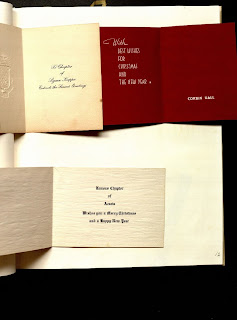 Chapter
of
Sigma Kappa
Extends the Season's Greetings
With
BEST WISHES
FOR
CHRISTMAS
AND
THE NEW YEAR
COWEN HALL
Kansas Chapter
of
Acacia
Wishes you a Merry Christmas
and a Happy New Year